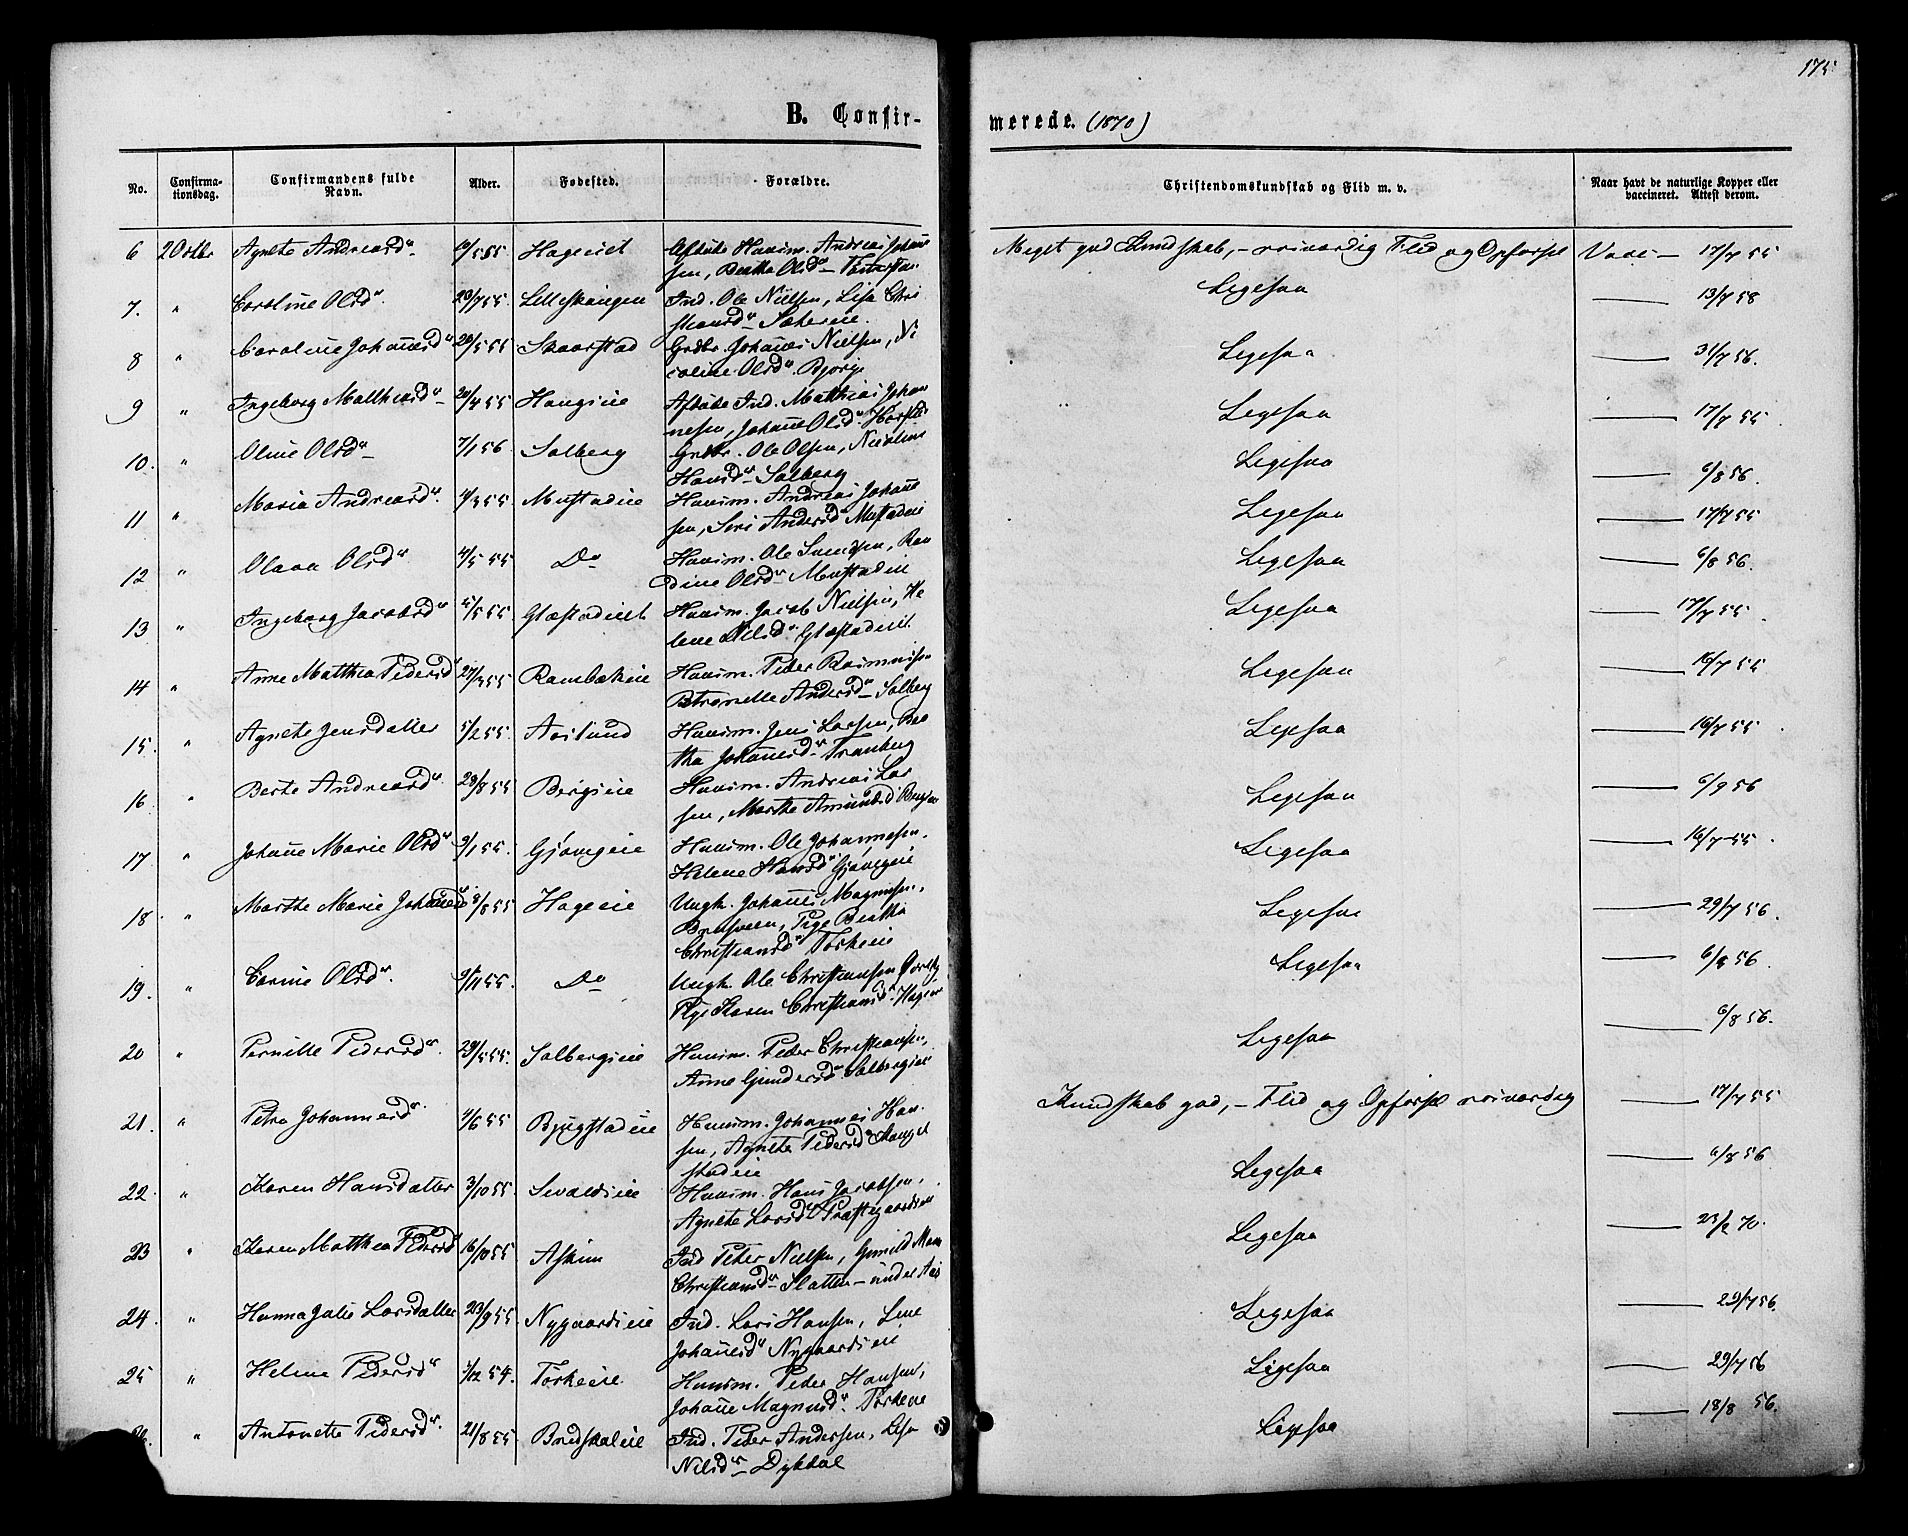 175
B. Confir-
merede. (1870)
No.
Confirma-
tionsdag.
Confirmandens fulde
Navn.
Alder.
Fødested.
Forældre.
Christendomskundskab og Flid m. v.
Naar havt de naturlige Kopper eller
vaccineret. Attest derom.
6 2 Octbr Agnete Andreasd. 10/5 55 Hageiet Afdøde Huusm. Andreas Johann
sen, Berthe Olsd. Meget god Kundskab, – roiværdig Flid og Opførsel Vacc – 17/7 55
7. " Caroline Olsd. 20/7 55. Lilleskaugen Ind. Ole Nielsen, Lisa Chri
stiansd. Sætereie. Ligesaa — 13/7 58
8 " Caroline Johannesd. 20/5 55 Skaarstad Grdbr. Johannes Nielsen, Ni
coline Olsd. Bjørge Ligesaa — 31/7 56.
9 " Ingeborg Matthiasd. 20/4 55 Haugseie Afdøde Ind. Matthias Johan
nesen, Johanne Olsd. Ligesaa — 17/7 55.
10. " Oline Olsd. 7/1 56 Solberg Grdbr. Ole Olsen,
Hansd. Solberg Ligesaa — 6/8 56.
11 " Maria Andreasd. 4/3 55 Mustadeie Huusm. Andreas Johann
sen, Siri Andersd. Mustadeie Ligesaa — 17/7 55
12 " Olava Olsd. 4/5 55 Do Huusm. Ole Svendsen, Ran
dine Olsd. Mustadeie Ligesaa — 6/8 56.
13 " Ingeborg Jacobsd. 5/5 55 Glæstadeiet Huusm. Jacob Nielsen, He
lene Nilsd. Glæstadeiet. Ligesaa — 17/7 55.
14 " Anne Matthea Pedersd. 27/3 55 Rambækeie Huusm. Peder Rasmussen
Petronelle Andersd. Solberg Ligesaa — 16/7 55
15. " Agnete Jensdatter 5/2 55 Aaslund Huusm. Jens Larsen, Bea
tha Johannesd. Tranberg Ligesaa — 16/7 55.
16. " Berte Andreasd. 29/8 55 Bergseie Huusm. Andreas Lar
sen, Marthe Amundsd. Ligesaa — 6/9 56
17. " Johanne Marie Olsd. 3/1 55. Gjøvigeie Huusm. Ole Johannesen.
Helene Hansd. Gjøvigeie Ligesaa — 16/7 55.
18. " Marthe Marie Johannesd. 9/8 55 Hageeie Ungk. Johannes Magnussen,
Bratsveen, Pige Beatha
Christiansd. Torkeeie Ligesaa — 29/7 56.
19. " Carine Olsd. 9/11 55. Do Ungk. Ole Christiansen
Pige Karen Christiansd. Hageeie Ligesaa — 6/8 56.
20 " Pernille Pedersd. 29/5 55. Solbergseie Huusm. Peder Christiansen,
Anne Gundersd. Solbergseie Ligesaa — 6/8 56.
21. " Petra Johannesd. 4/6 55 Bjugstadeie Huusm. Johannes Han
sen, Agnete Pedersd. Kaaget
stadeie Kundskab god, – Flid og Opførsel roiværdig — 17/7 55
22. " Karen Hansdatter 3/10 55. Sivaldseie Huusm. Hans Jacobsen.
Agnete Larsd. Præstegaardseie Ligesaa — 6/8 56
23 " Karen Matthea Pedersd. 16/10 55 Askim Ind Peter Nielsen, Gunild Marie
Christiansd. Slatten – under Aas Ligesaa — 23/2 70.
24. " Hanna Julie Larsdatter 23/9 55 Nygaardseie Ind. Lars Hansen, Lene
Johannesd. Nygaardseie Ligesaa — 29/7 56.
25 " Helene Pedersd. 3/12 54. Torkeeie Huusm. Peder Hansen,
Johanne Magnusd. Torkeeie Ligesaa — 29/7 56
26. " Antonette Pedersd. 21/8 55 Bredskaleie Ind. Peder Andersen, Lisa
Nilsd. – Dyhdal Ligesaa — 18/8 56.